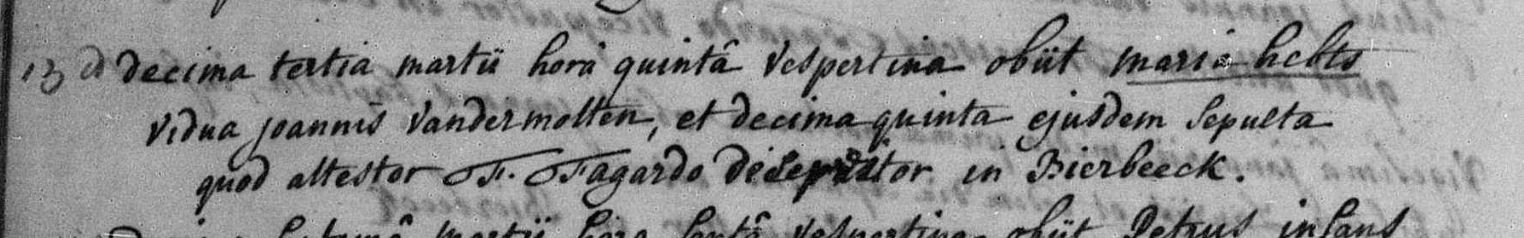 13 a decima tertia martii horâ quintâ vespertina obiit maria hebts
vidua joannis vandermolten, et decima quinta ejusdem sepulta
quod attestor F. Fagardo in Bierbeeck.
martii hora vespertina obiit Petrus infans